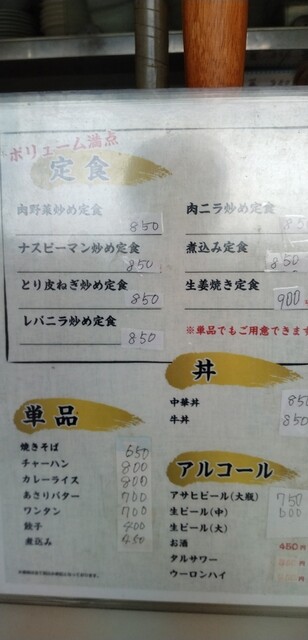 ボリューム満点
定食
肉野菜炒め定食 850
ナスピーマン炒め定食 850
とり皮ねぎ炒め定食 850
レバニラ炒め定食 850
肉ニラ炒め定食
煮込み定食 850
生姜焼き定食 900
※単品でもご用意できます
丼
中華丼 850
牛丼 850
単品
焼きそば 650
チャーハン 800
カレーライス 800
あさりバター 700
ワンタン 700
餃子 400
煮込み 450
アルコール
アサヒビール(大瓶) 750
生ビール(中) 600
生ビール(大)
お酒 450円
タルサワー
ウーロンハイ